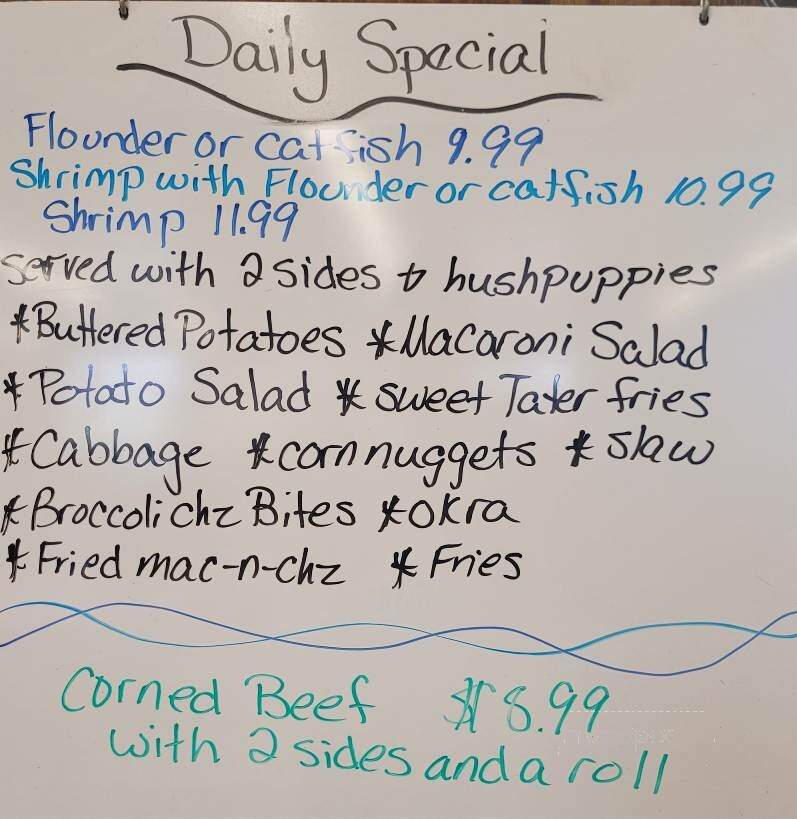 Daily Special
Flounder or catfish 9.99
Shrimp with Flounder or catfish 10.99
Shrimp 11.99
Served with 2 sides & hushpuppies
*Buttered Potatoes *Macaroni Salad
*Potato Salad *sweet Tater fries
*Cabbage *corn nuggets *slaw
*Broccoli chz Bites *okra
*Fried mac-n-chz *Fries
Corned Beef $8.99
with 2 sides and a roll